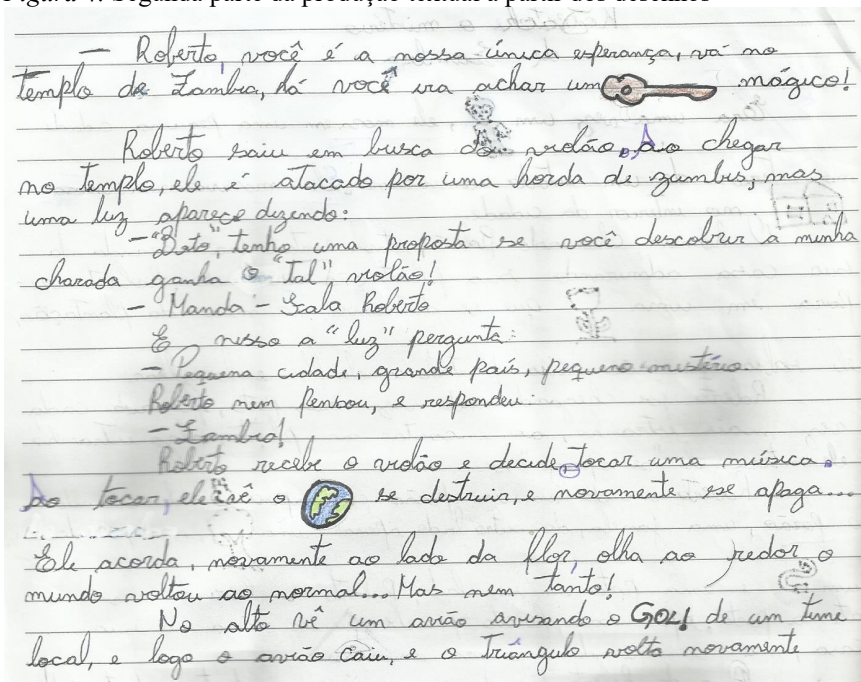 Figura 4: Segunda parte da produção textual a partir dos desenhos
— Roberto, você é a nossa única esperança, vá no
templo de Zambia, há você ira achar um mágico!
Roberto saiu em busca do violão, ao chegar
no templo, ele é atacado por uma horda de zumbis, mas
uma luz aparece dizendo:
—"Beto", tenho uma proposta se você descobrir a minha
charada ganha o "tal" violão!
— Manda — Fala Roberto
E nisso a "luz" pergunta:
— Pequena cidade, grande país, pequeno mistério.
Roberto nem pensou, e respondeu:
— Zambia!
Roberto recebe o violão e decide tocar uma música.
Ao tocar, ele vê o se destruir, e novamente se apaga...
Ele acorda, novamente ao lado da flor, olha ao redor o
mundo voltou ao normal... Mas nem tanto!
No alto vê um avião avisando o GOL! de um time
local, e logo o avião caiu, e o triângulo volta novamente